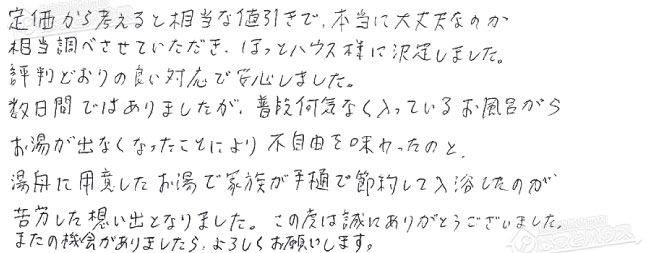 定価から考えると相当な値引きで、本当に大丈夫なのか
相当調べさせていただき、ほっとハウス様に決定しました。
評判どおりの良い対応で安心しました。
数日間ではありましたが、普段何気なく入っているお風呂から
お湯が出なくなったことにより不自由を味わったのと、
湯舟に用意したお湯で家族が手桶で節約して入浴したのが
苦労した想い出となりました。この度は誠にありがとうございました。
またの機会がありましたら、よろしくお願いします。